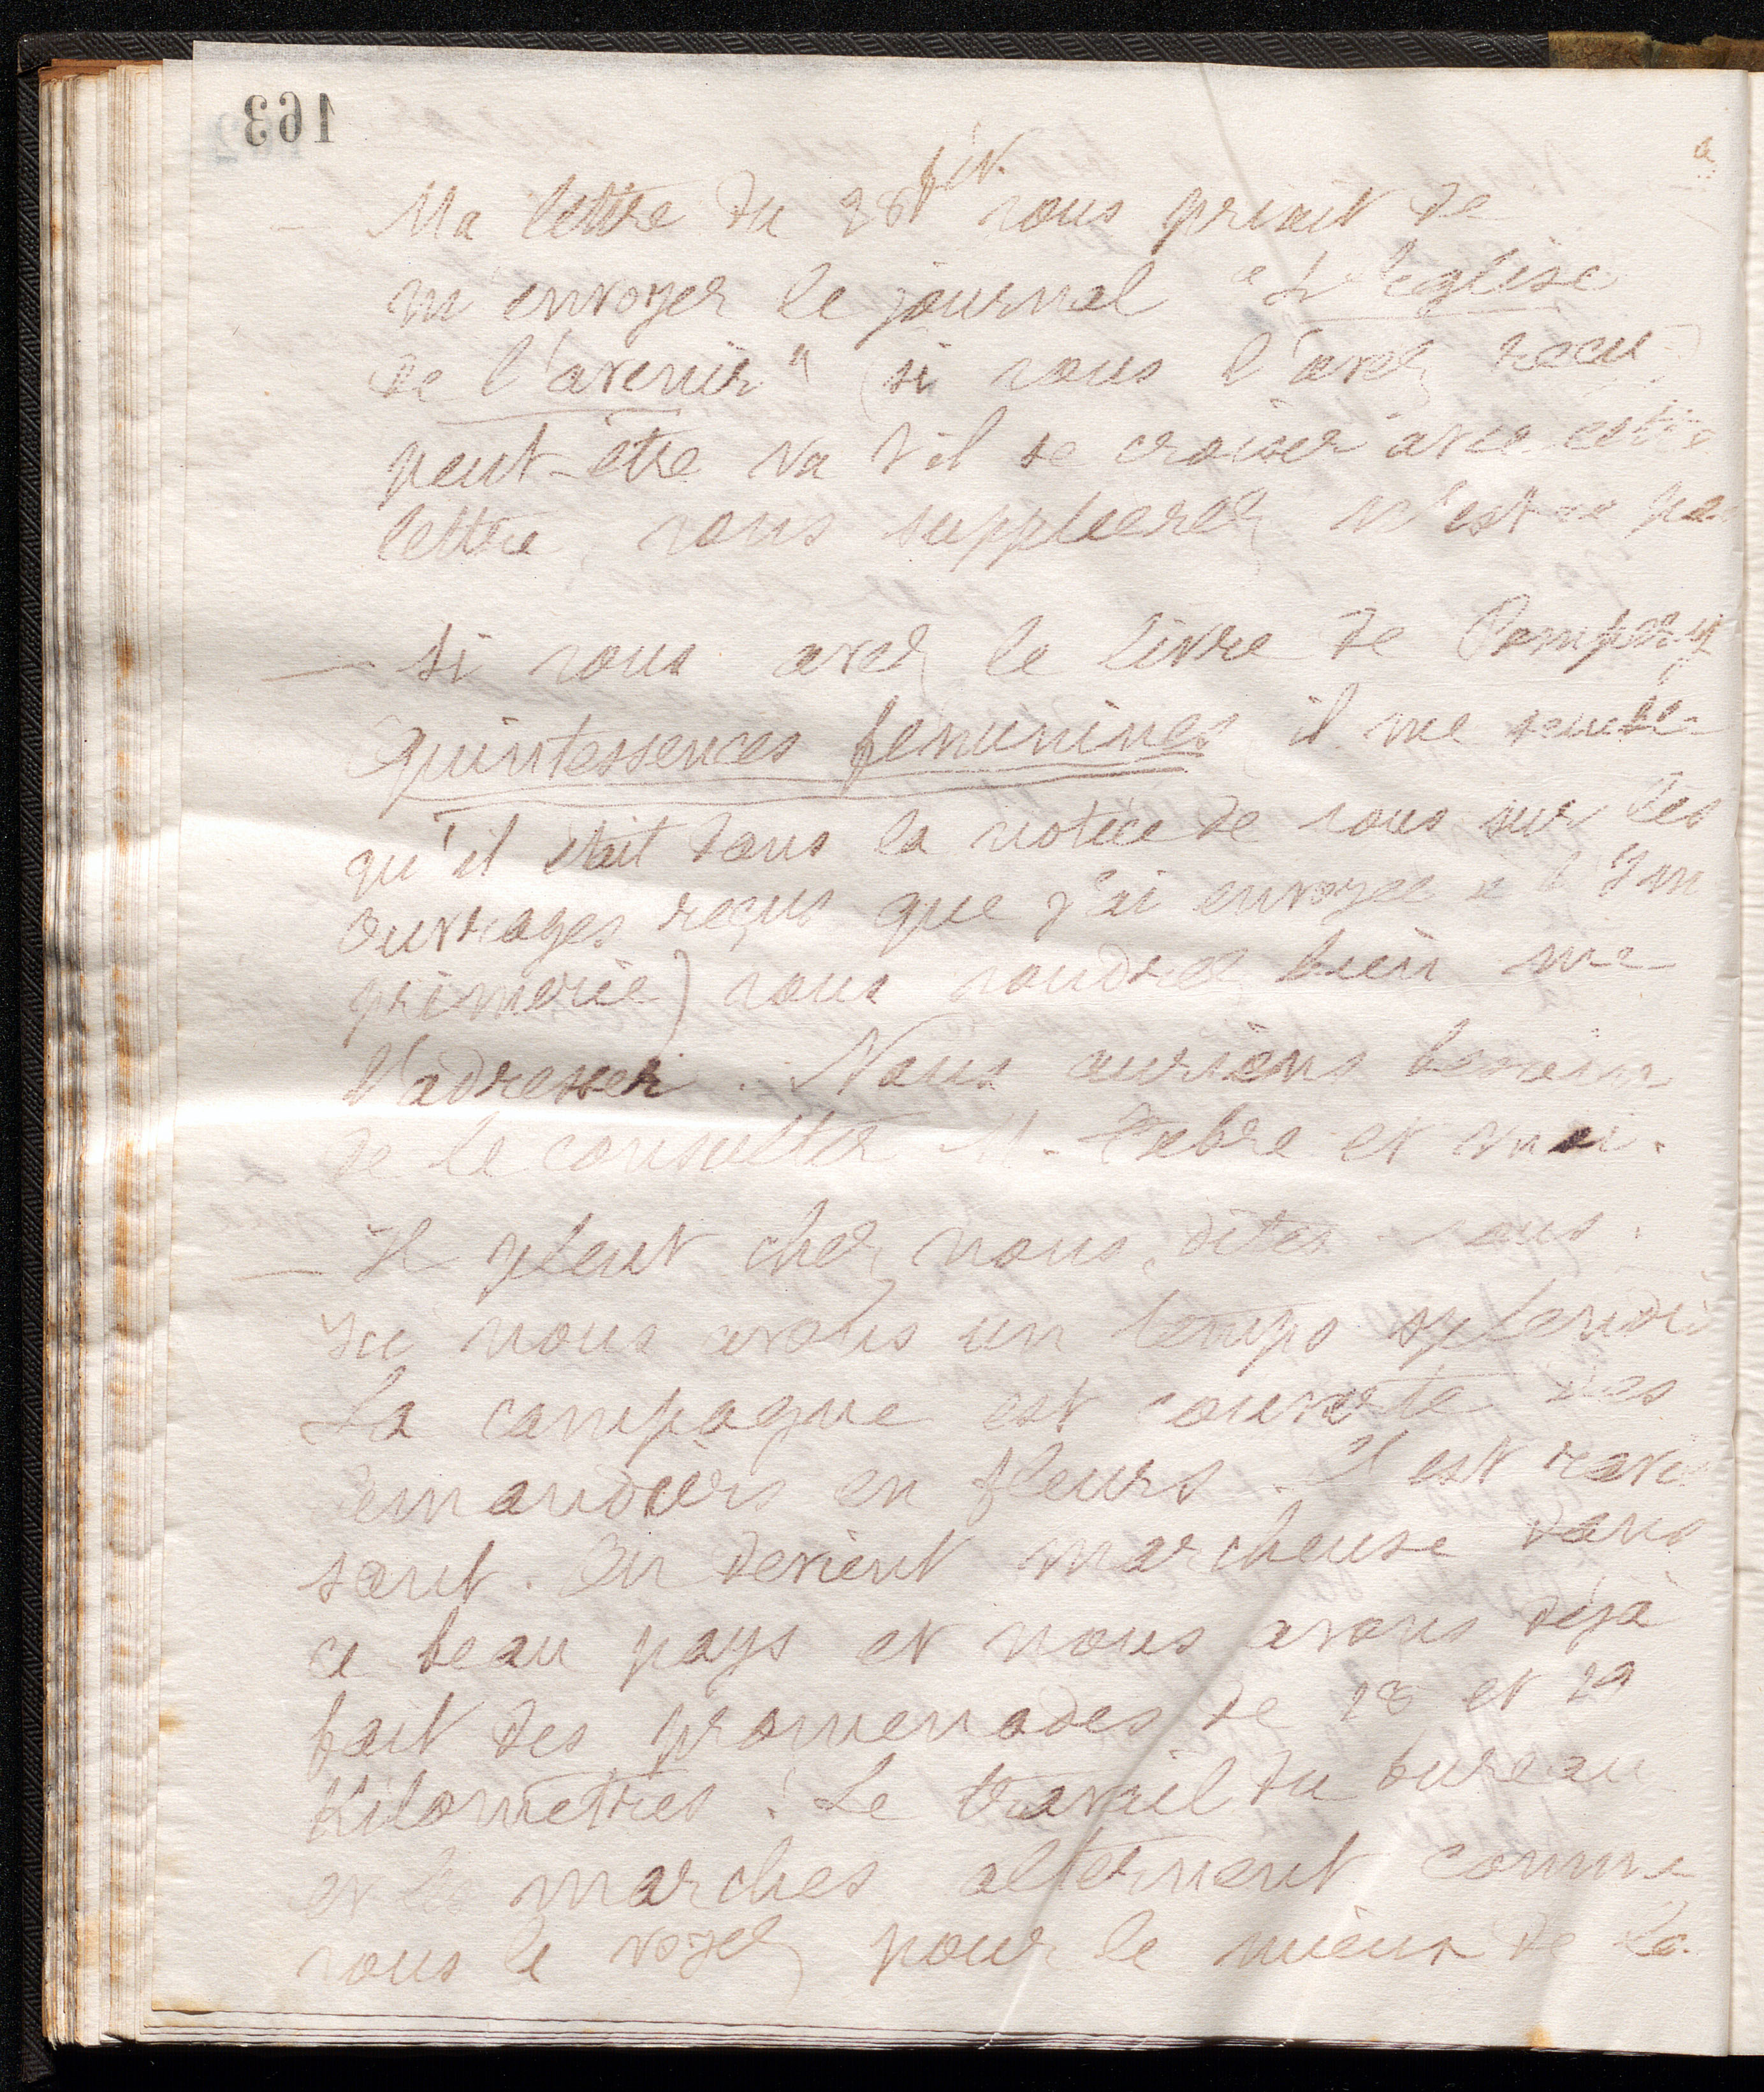 163
— Ma lettre du 28 fév. vous priait de
m'envoyer le journal "L'église
de l'avenir" (si vous l'avez recu)
peut-être va t'il se croiser avec cette
lettre, vous suppléerez n'est ce pas
— Si vous avez le livre de Pompéry
Quintessences féminines il me semble
qu'il était dans la notice de vous sur les
ouvrages reçus que j'ai envoyée à l'Im
primerie) vous voudrez bien me
l'adresser. Nous aurions besoin
de le consulter M. Fabre et moi.
— Il pleut chez nous, dites-vous.
Ici nous avons un temps splendide
La campagne est couverte des
amandiers en fleurs. C'est ravis
sant. On devient marcheuse dans
ce beau pays et nous avons déjà
fait des promenades de 28 et 29
Kilomètres! Le travail du bureau
et les marches alternent comme
vous le voyez pour le mieux de la